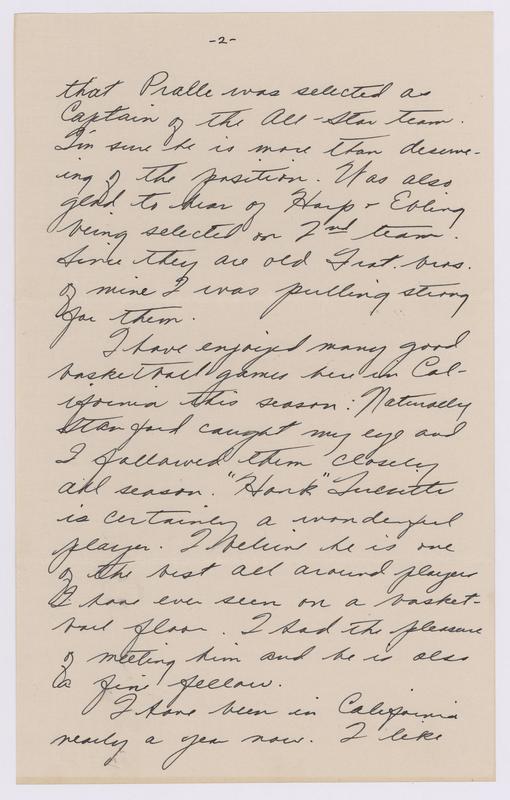 -2-
that Pralle was selected as
Captain of the All-Star team.
I'm sure he is more than deserv-
ing of the position. Was also
glad to hear of Harp & Ebling
being selected on 2nd team.
Since they are old Frat. bros.
of mine I was pulling strong
for them.
I have enjoyed many good
basketball games here in Cal-
ifornia this season. Naturally
Stanford caught my eye and
I followed them closely
all season. "Hank" Luisetti
is certainly a wonderful
player. I believe he is one
of the best all around players
I have ever seen on a basket-
ball floor. I had the pleasure
of meeting him and he is also
a fine fellow.
I have been in California
nearly a year now. I like